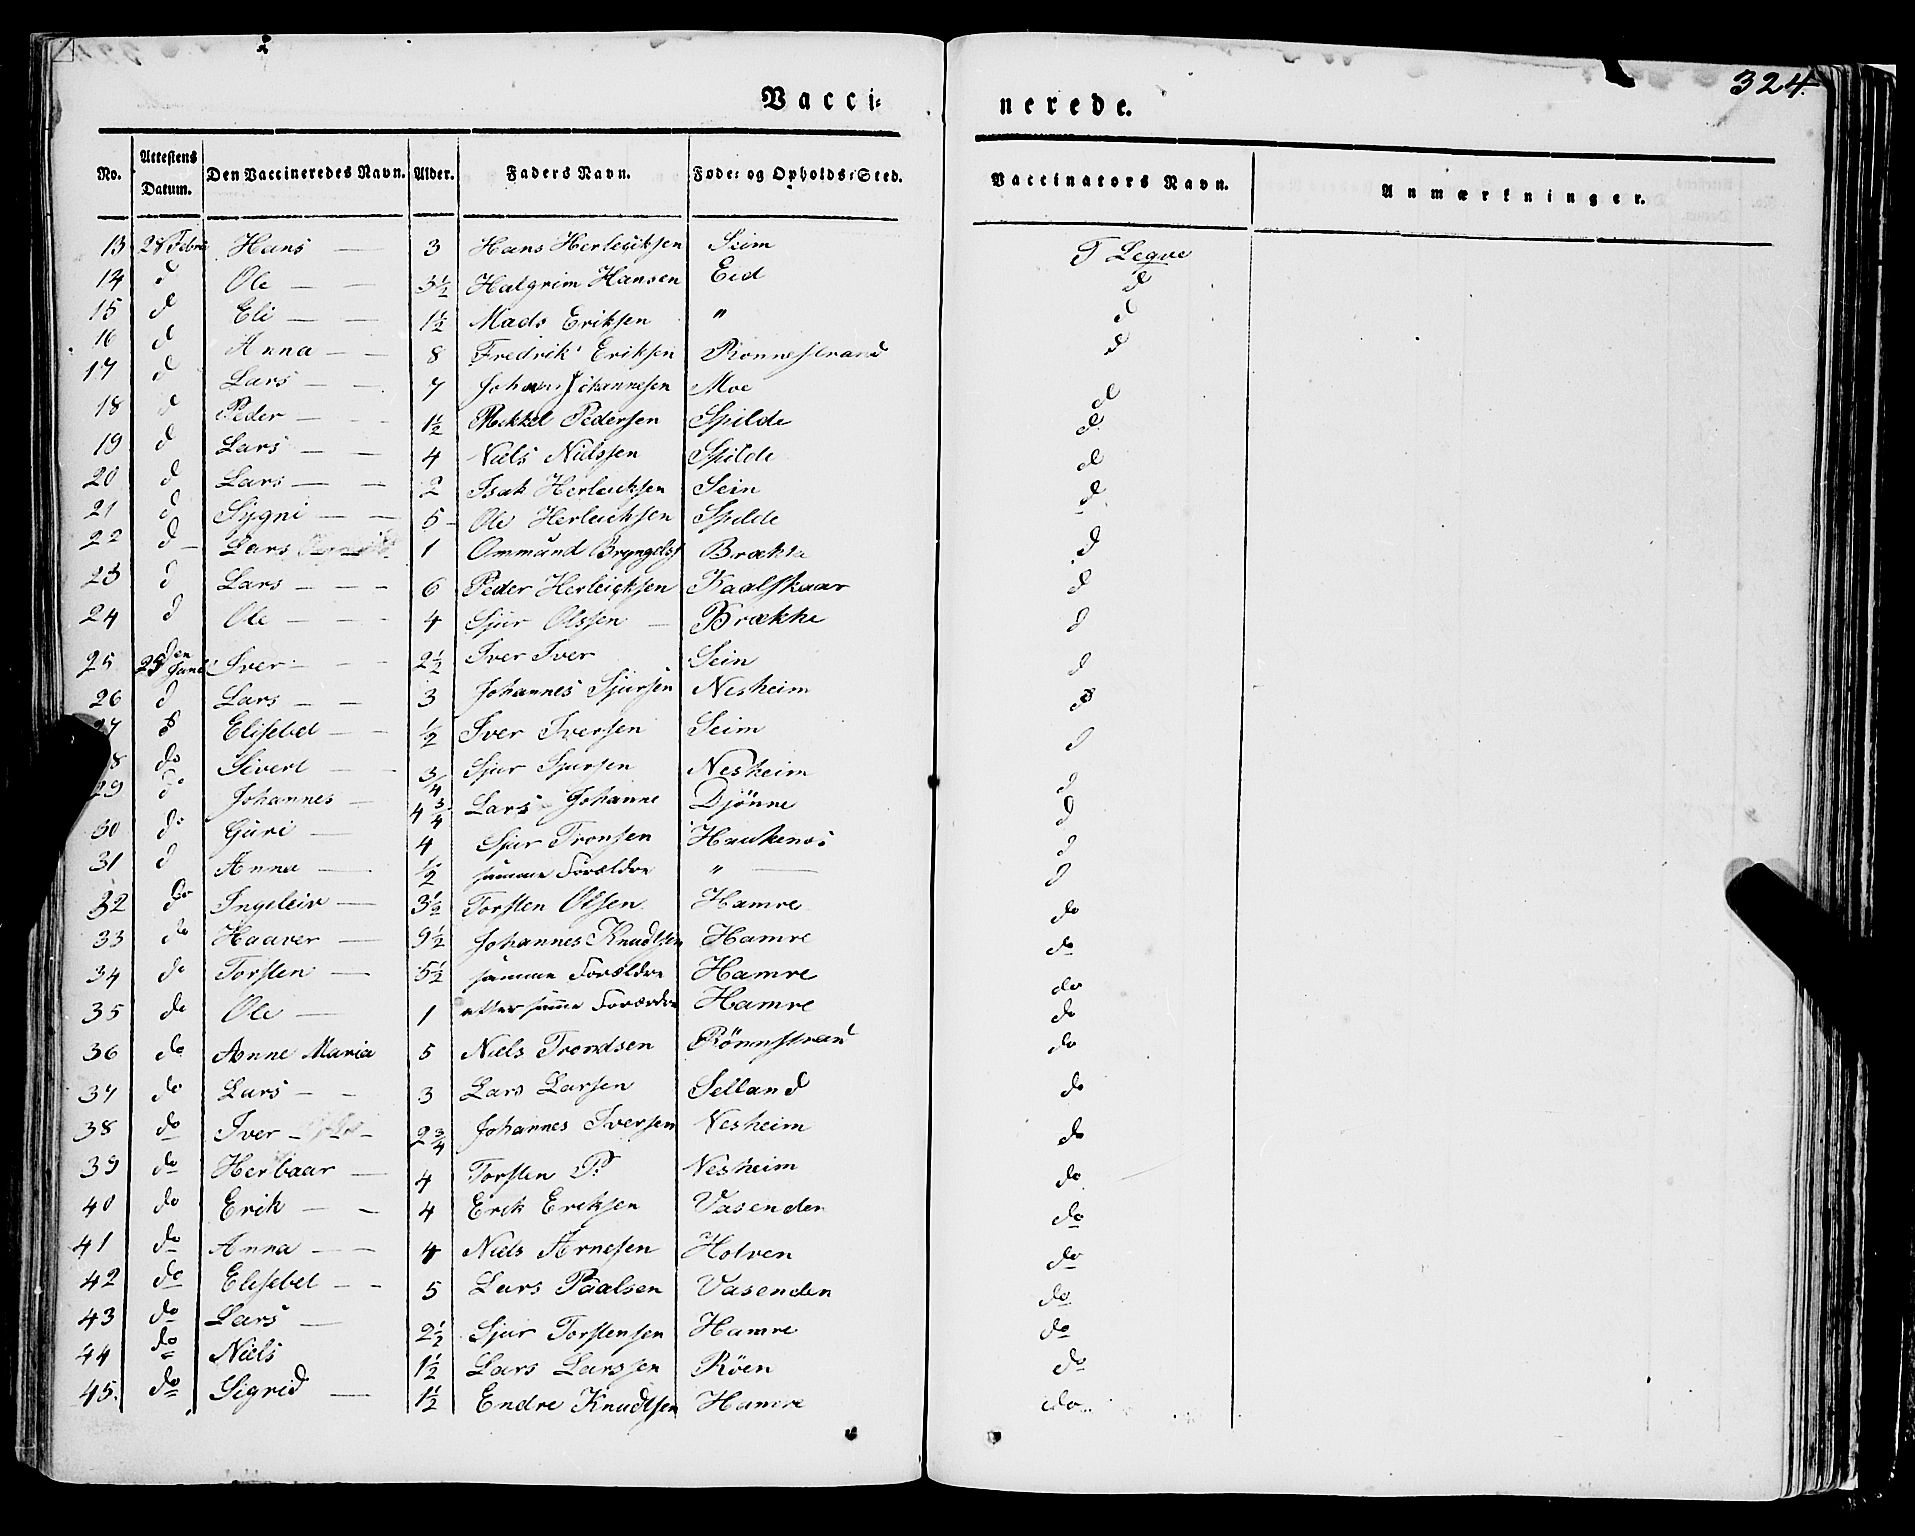 324.
Vacci-
nerede.
No. Attestens Datum. Den Vaccineredes Navn. Alder. Faders Navn. Føde- og Opholds-Sted. Vaccinators Navn. Anmærkninger.
13 28 Febru Hans — 3 Hans Herleiksen Seim T Legve
14 d Ole — — 3½ Halgrim Hansen Eid d
15 d Eli — — 1½ Mads Eriksen " d
16 d Anna — — 8 Fredrik Eriksen Ronnestrand d
17 d Lars — — 7 Johannesen Moe d
18 d Peder — — 1½ Mikkel Pedersen Spilde d
19 d Lars — — 4 Niels Nielssen Spilde d
20 d Lars — — 2 Isak Herleiksen Sein d
21 d Sygni — — 5 Ole Herleiksen Spilde d
22 d Lars 1 Ommund Bryngels Brække d
23 d Lars — — — 6 Peder Herleiksen Kaalskaar d
24 d Ole — — — 4 Sjur Olssen — Brække d
25 25 den Juni Iver — — — 2½ Iver Iver Sein d
26 d Lars — — 3 Johannes Sjursen Nesheim d
27 d Elisebet — — ½ Iver Iversen Seim d
28 do Sivert — — 3/4 Sjur Sjursen Nesheim d
29 do Johannes — 4 3/4 Lars Johanne Djönne d
30 do Guri — 4 Sjur Tronsen Haukenes d
31 d Anna — ½ samme Forældre " — d
32 do Ingeleiv — 3½ Torsten Olsen Hamre do
33 do Haaver — 9½ Johannes Knudtsen Hamre do
34 do Torsten — 5½ samme Forældre Hamre do
35 do Ole — 1 samme Forældre Hamre do
36 do Anne Maria 5 Niels Trondsen Rönnstrand do
37 do Lars — — 3 Lars Larsen Selland do
38 do Iver 2 3/4 Johannes Iversen Nesheim do
39 do Herbaar — 4 Torsten P. Nesheim do
40 do Erik — — 4 Erik Eriksen Vasenden do
41 do Anna — — 4 Niels Arnesen Holven do
42 do Elisebet — — 5 Lars Paalsen Vasenden do
43 do Lars — 2½ Sjur Torstensen Hamre do
44 do Niels 1½ Lars Larssen Röen do
45. do Sigrid — 1½ Endre Knudtsen Hamre do